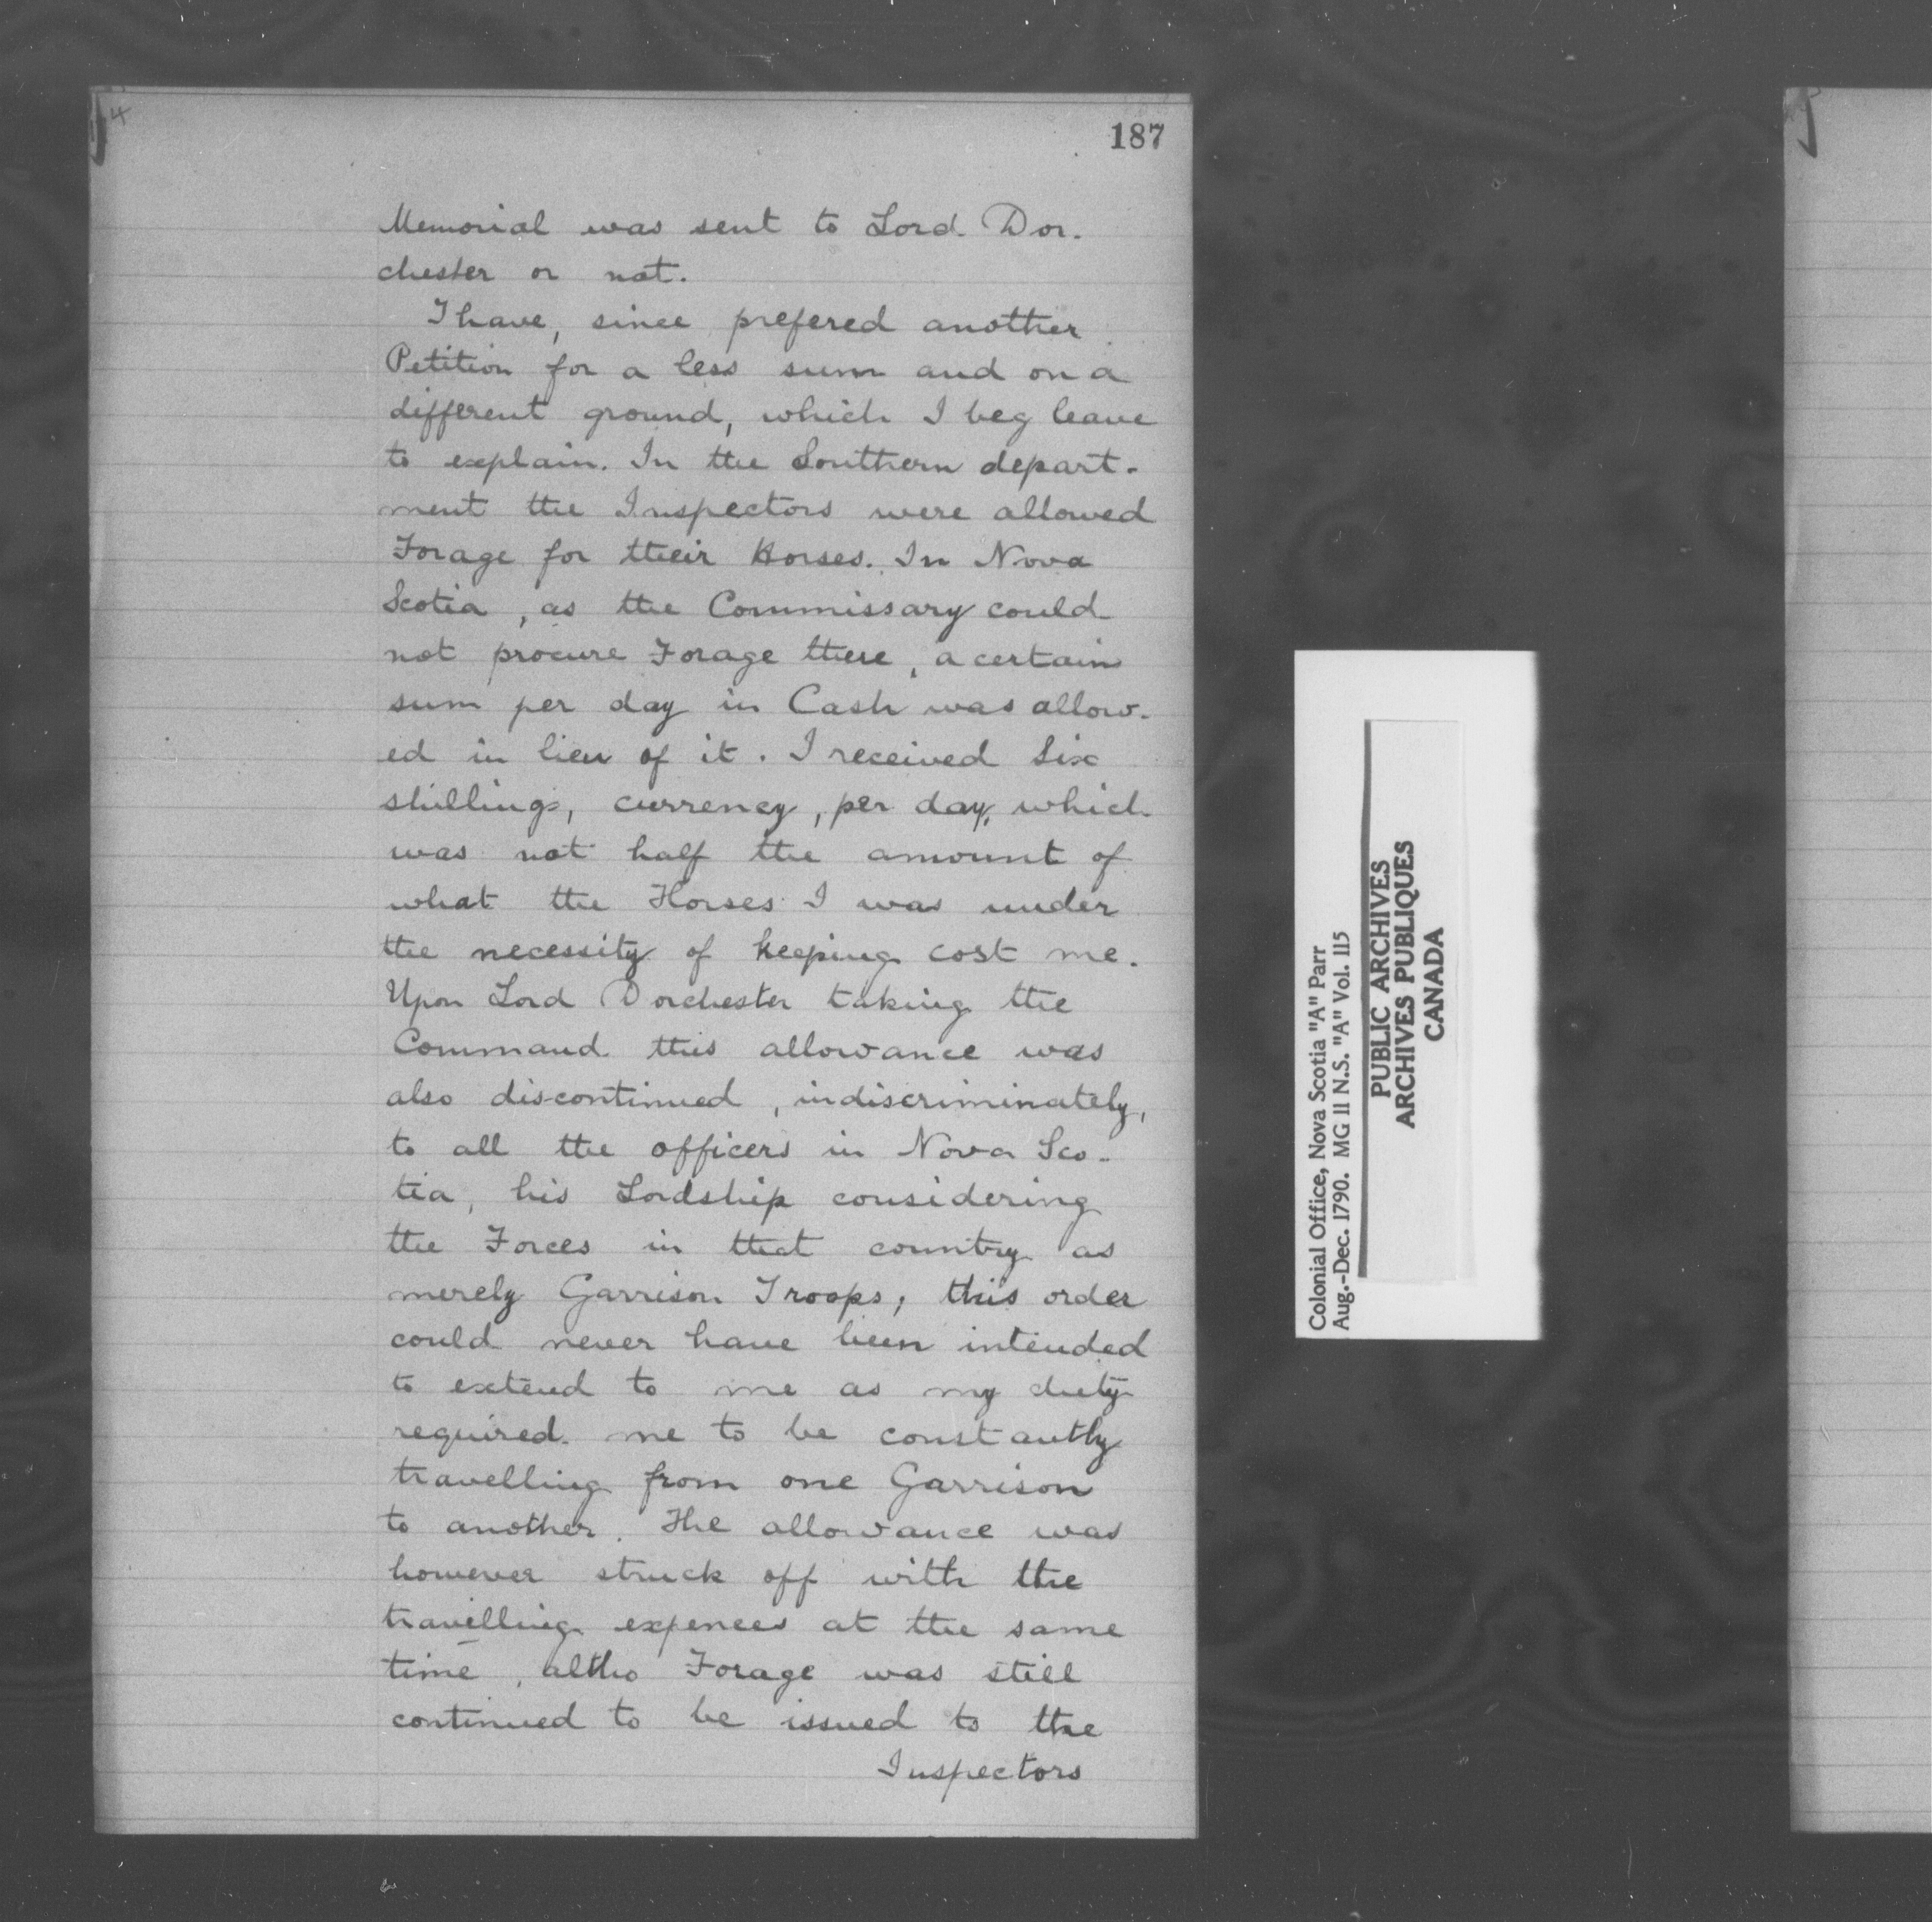 4
187
Memorial was sent to Lord Dor-
chester or not.
I have, since prefered another
Petition for a less sum and on a
different ground, which I beg leave
to explain. In the Southern depart-
ment the Inspectors were allowed
Forage for their Horses. In Nova
Scotia, as the Commissary could
not procure Forage there, a certain
sum per day in Cash was allow-
ed in lieu of it. I received Six
shillings, currency, per day, which
was not half the amount of
what the Horses I was under
the necessity of keeping cost me.
Upon Lord Dorchester taking the
Command this allowance was
also discontinued, indiscriminately,
to all the officers in Nova Sco-
tia, his Lordship considering
the Forces in that country as
merely Garrison Troops; this order
could never have been intended
to extend to me as my duty
required me to be constantly
travelling from one Garrison
to another. The allowance was
however struck off with the
travelling expences at the same
time, altho Forage was still
continued to be issued to the
Inspectors
Colonial Office, Nova Scotia "A" Parr
Aug.-Dec. 1790. MG 11 N.S. "A" Vol. 115
PUBLIC ARCHIVES
ARCHIVES PUBLIQUES
CANADA